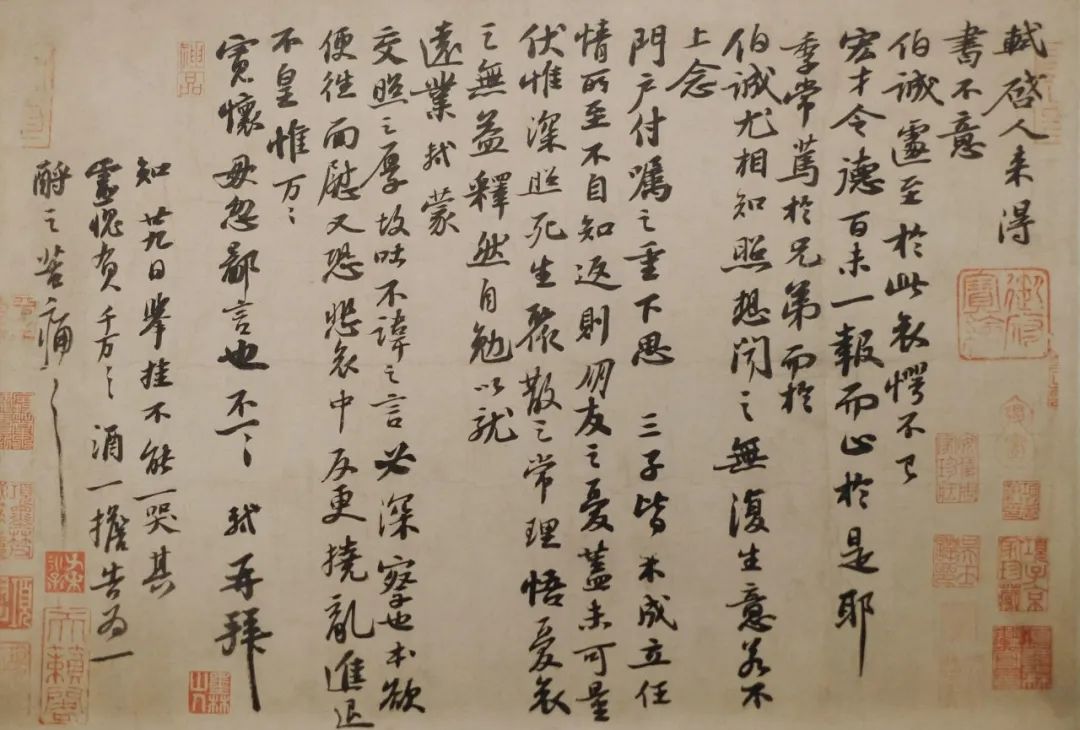 軾啓人来得
書不意
伯誠遽至於此哀愕不已
宏才令德百未一報而止於是耶
季常篤於兄弟而於
伯誠尤相知照想聞之無復生意若不
上念
門户付囑之重下思三子皆未成立任
情所至不自知返則朋友之憂蓋未可量
伏惟深照死生聚散之常理悟憂哀
之無益釋然自勉以就
遠業軾蒙
交照之厚故吐不諱之言必深察也本欲
便往面慰又恐悲哀中反更撓亂進退
不皇惟万〻
寬懷毋忽鄙言也不一〻軾再拜
知廿九日舉挂不能一哭其
靈愧負千万〻酒一擔告為一
酹之苦痛〻
神品